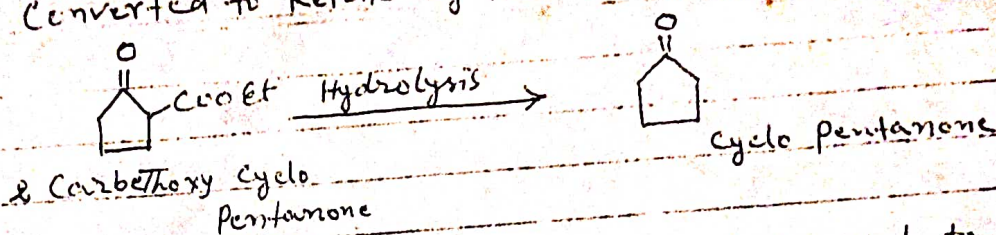 Converted to
O
O
COOEt Hydrolysis
Cyclo Pentanone
2 Carbethoxy Cyclo
Pentanone